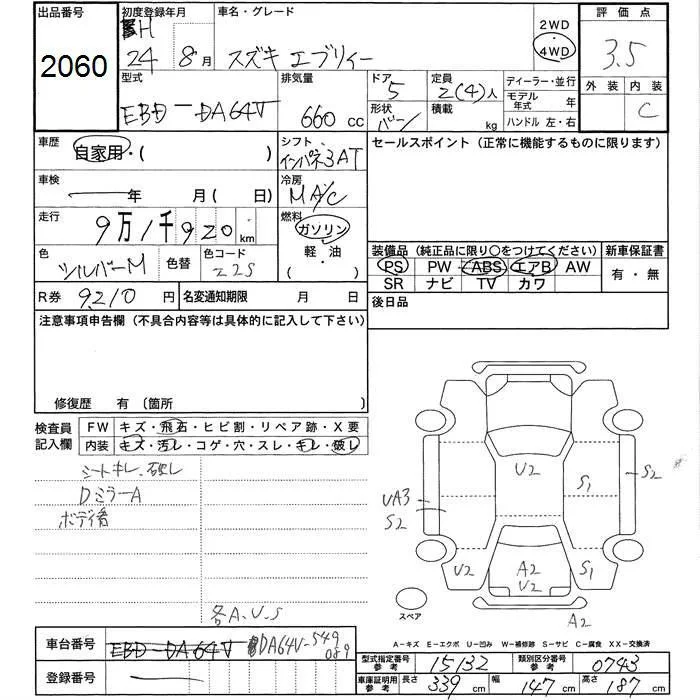 出品番号
2060
初度登録年月
H
24 8 月
車名・グレード
スズキ エブリイ
2WD
・
4WD
評価点
3.5
外装 内装
C
型式
EBD-DA64V
排気量
660 cc
ドア
5
形状
バン
定員
2(4)人
積載
kg
ディーラー・並行
モデル年式 年
ハンドル 左・右
車歴
自家用・( )
シフト
インパネ3AT
車検
年 月( 日)
冷房
MA/C
走行
9万1千920km
燃料
ガソリン
・
軽・油
( )
色
ツルバーM
色替
色コード
Z2S
R券 9210円
名変通知期限 月 日
セールスポイント (正常に機能するものに限ります)
装備品 (純正品に限り○をつけてください)
PS・PW・ABS・エアB・AW
SR ナビ TV カワ
新車保証書
有・無
後日品
注意事項申告欄 (不具合内容等は具体的に記入して下さい)
修復歴 有 (箇所 )
検査員記入欄
FW キズ・飛石・ヒビ割・リペア跡・X要
内装 キズ・汚レ・コゲ・穴・スレ・キレ・破レ
シートキレ、破レ
DミラーA
ボディ
各A.U.S
U2
S1
S2
UA3
S2
U2
A2
U2
S1
A2
スペア
A-キズ E-エクボ U-凹み W-補修跡 S-サビ C-腐食 XX-交換済
車台番号 EBD-DA64V DA64V-549
089
登録番号
型式指定番号参考 15132
類別区分番号参考 0743
車庫証明用参考 長さ 339cm 幅 147cm 高さ 187cm